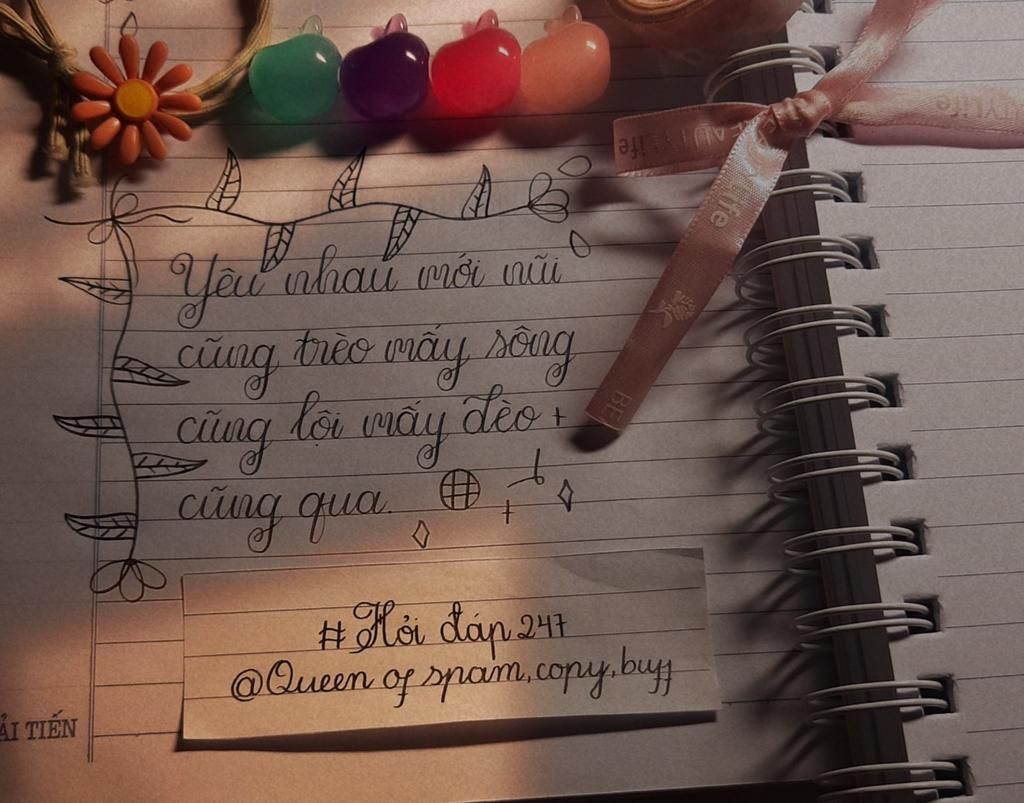 BEAUTYLife
UYLife
Life
BE
Yêu nhau mới nũi
cũng trèo mấy sông
cũng lội mấy đèo +
cũng qua.
# Hỏi đáp 247
@Queen of spam, copy, buff
ẢI TIẾN